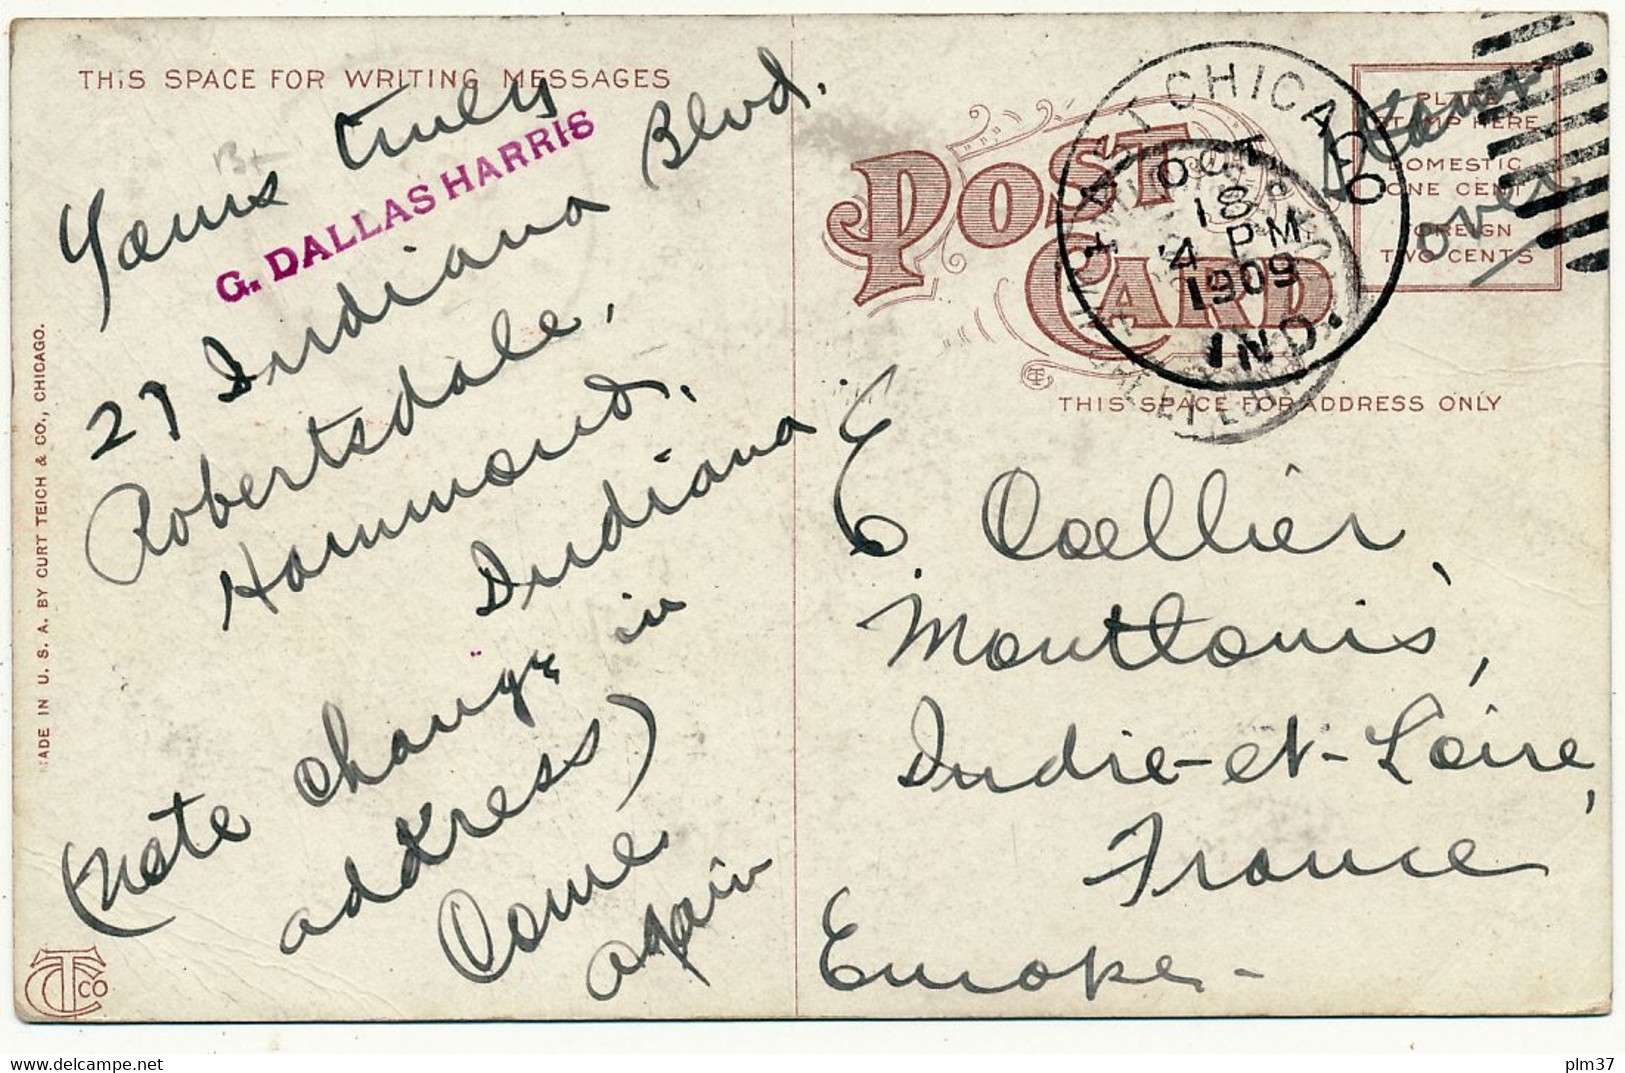 THIS SPACE FOR WRITING MESSAGES
Yours truly
G. DALLAS HARRIS
27 Indiana Blvd.
Robertsdale,
Hammond,
Indiana
(Note change in
address)
Come
again
MADE IN U. S. A. BY CURT TEICH & CO., CHICAGO.
CTCO
POST
CARD
EAST CHICAGO
OCT
18
4 PM
1909
IND.
PLACE
STAMP HERE
DOMESTIC
ONE CENT
FOREIGN
TWO CENTS
Stamp
over
THIS SPACE FOR ADDRESS ONLY
E Coellier,
Montlouis,
Indre-et-Loire,
France,
Europe-
plm37
www.delcampe.net